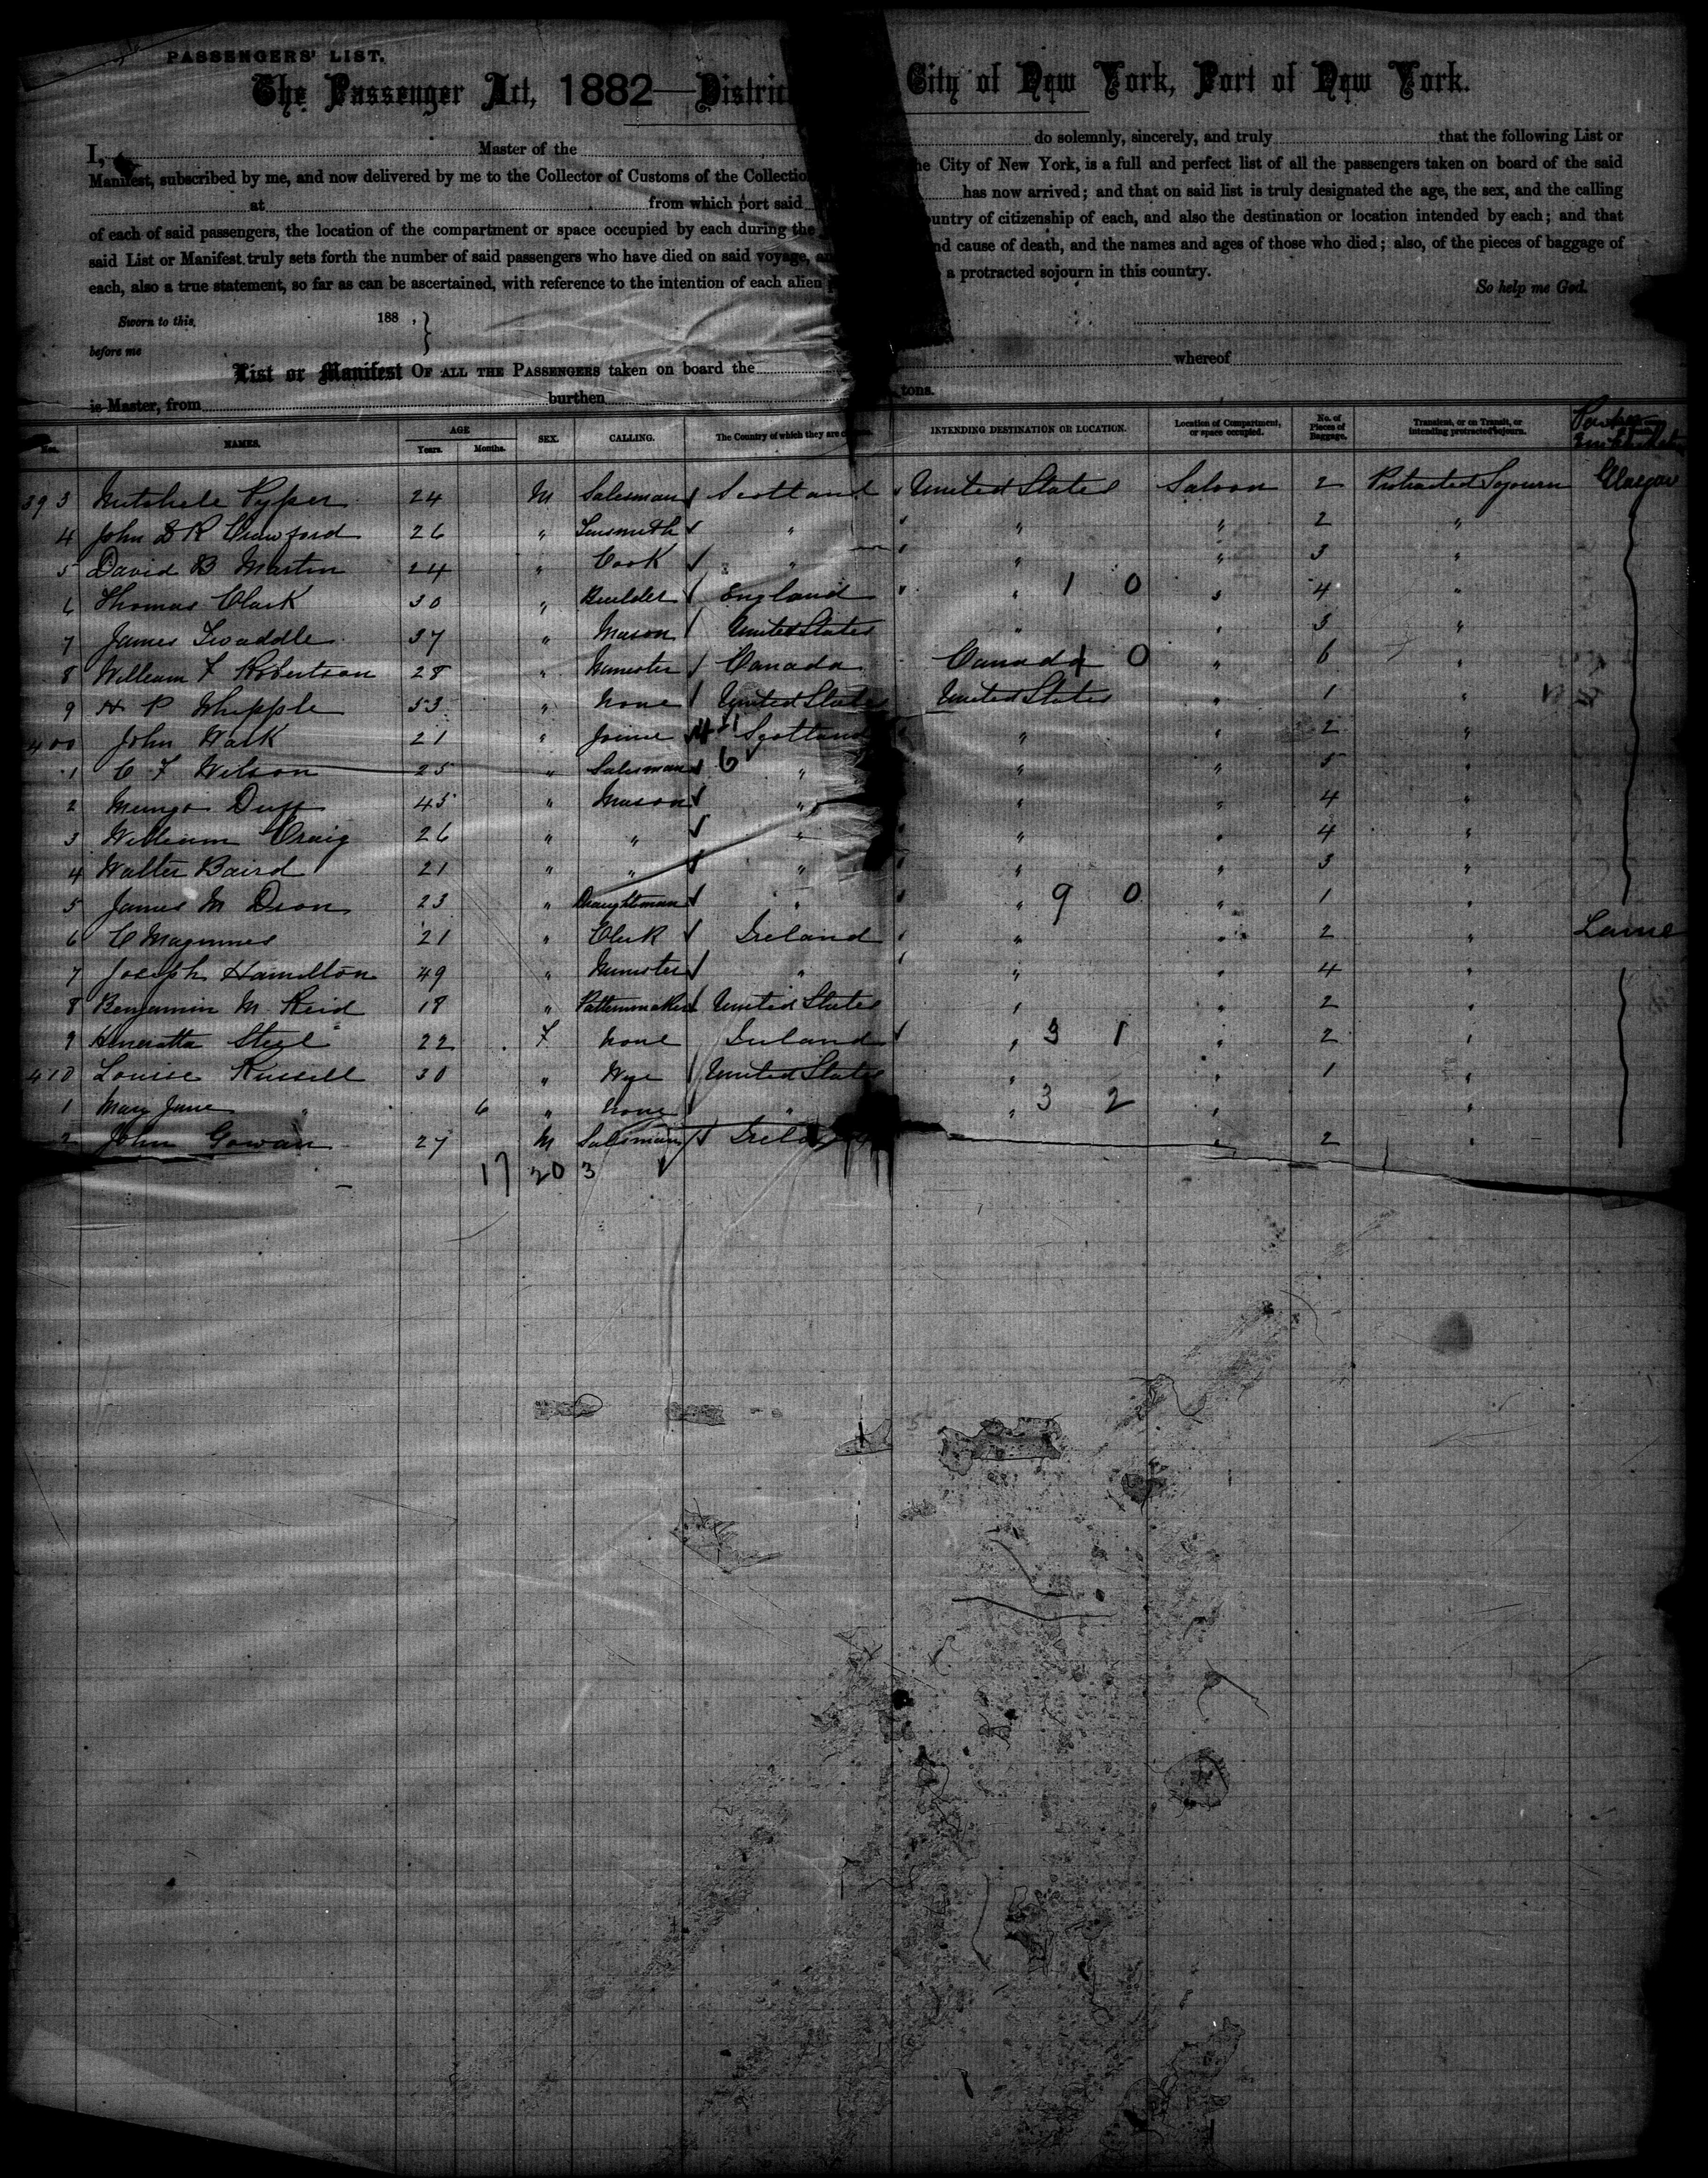 PASSENGERS' LIST.
The Passenger Act, 1882—District City of New York, Port of New York.
I, Master of the do solemnly, sincerely, and truly that the following List or
Manifest, subscribed by me, and now delivered by me to the Collector of Customs of the Collectio he City of New York, is a full and perfect list of all the passengers taken on board of the said
at from which port said has now arrived; and that on said list is truly designated the age, the sex, and the calling
of each of said passengers, the location of the compartment or space occupied by each during the ountry of citizenship of each, and also the destination or location intended by each; and that
said List or Manifest truly sets forth the number of said passengers who have died on said voyage, an nd cause of death, and the names and ages of those who died; also, of the pieces of baggage of
each, also a true statement, so far as can be ascertained, with reference to the intention of each alien a protracted sojourn in this country.
So help me God.
Sworn to this, 188 ,
before me
List or Manifest OF ALL THE PASSENGERS taken on board the whereof
is Master, from burthen tons.
Nos. NAMES. AGE Years. Months. SEX. CALLING. The Country of which they are c INTENDING DESTINATION OR LOCATION. Location of Compartment, or space occupied. No. of Pieces of Baggage. Transient, or on Transit, or intending protracted sojourn.
393 Mitchele Pyper 24 M Salesman Scotland United States Saloon 2 Protracted Sojourn Glasgow
4 John B R Crawford 26 " Tinsmith " " " 2 "
5 David B Martin 24 " Cook " " " 3 "
6 Thomas Clark 30 " Builder England " 1 0 " 4 "
7 James Twaddle 37 " Mason United States " " 3 "
8 William F Robertson 28 " Minister Canada Canada 1 0 " 6 "
9 H P Whipple 53 " None United States United States " 1 "
400 John Wark 21 " Joiner Scotland " " 2 "
1 C F Wilson 25 " Salesman 6 " " " 5 "
2 Mungo Duff 45 " Mason " " " 4 "
3 William Craig 26 " " " " " 4 "
4 Walter Baird 21 " " " " " 3 "
5 James M Dron 23 " Draughtsman " " 9 0 " 1 "
6 C Maginnes 21 " Clerk Ireland " " 2 " Larne
7 Joseph Hamilton 49 " Minister " " " 4 "
8 Benjamin M Reid 18 " Patternmaker United States " " 2 "
9 Heneratta Steel 22 F None Ireland " 3 1 " 2 "
410 Louise Russell 30 " Wife United States " " 1 "
1 Mary Jane " 6 " None " " 3 2 " "
2 John Gowan 27 M Salesman Ireland " 2 "
17 20 3